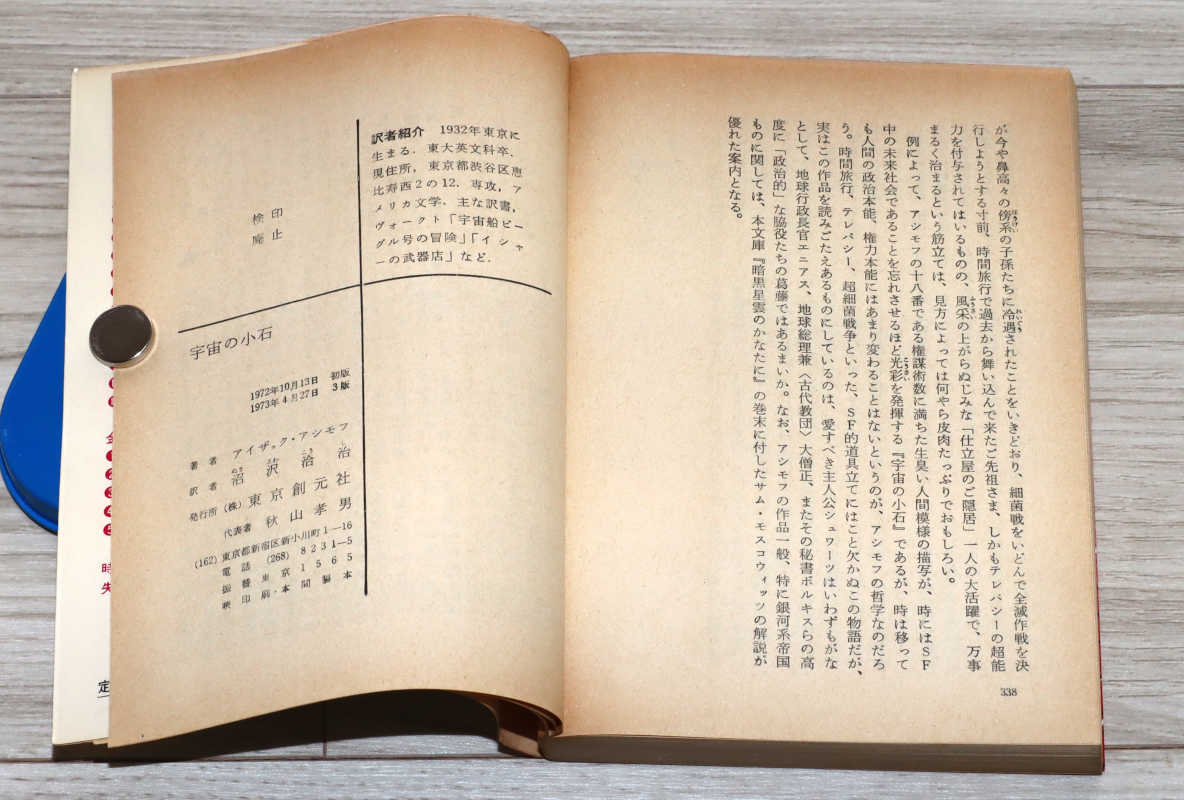 が今や鼻高々の傍系の子孫たちに冷遇されたことをいきどおり、細菌戦をいどんで全滅作戦を決
行しようとする寸前、時間旅行で過去から舞い込んで来たご先祖さま、しかもテレパシーの超能
力を付与されてはいるものの、風采の上がらぬじみな「仕立屋のご隠居」一人の大活躍で、万事
まるく治まるという筋立ては、見方によっては何やら皮肉たっぷりでおもしろい。
例によって、アシモフの十八番である権謀術数に満ちた生臭い人間模様の描写が、時にはＳＦ
中の未来社会であることを忘れさせるほど光彩を発揮する『宇宙の小石』であるが、時は移って
も人間の政治本能、権力本能にはあまり変わることはないというのが、アシモフの哲学なのだろ
う。時間旅行、テレパシー、超細菌戦争といった、ＳＦ的道具立てにはこと欠かぬこの物語だが、
実はこの作品を読みごたえあるものにしているのは、愛すべき主人公シュワーツはいわずもがな
として、地球行政長官エニアス、地球総理兼〈古代教団〉大僧正、またその秘書ボルキスらの高
度に「政治的」な脇役たちの葛藤ではあるまいか。なお、アシモフの作品一般、特に銀河系帝国
ものに関しては、本文庫『暗黒星雲のかなたに』の巻末に付したサム・モスコウィッツの解説が
優れた案内となる。
338
訳者紹介 1932年東京に
生まる．東大英文科卒．
現住所，東京都渋谷区恵
比寿西2の12．専攻，ア
メリカ文学．主な訳書，
ヴォークト「宇宙船ビー
グル号の冒険」「イシャ
ーの武器店」など．
検印
廃止
宇宙の小石
1972年10月13日 初版
1973年4月27日 3版
著者 アイザック・アシモフ
訳者 沼沢洽治
発行所 (株) 東京創元社
代表者 秋山孝男
(162) 東京都新宿区新小川町1—16
電話 (268) 8231—5
振替 東京 1565
暁印刷・本間製本
定